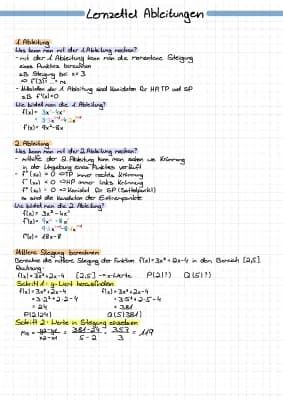 Lernzettel Ableitungen
1. Ableitung
Was kann man mit der 1. Ableitung machen?
- mit der 1. Ableitung kann man die momentane Steigung
eines Punktes berechnen
z.B. Steigung bei x=3
=> f'(3) = m
- Nullstellen der 1. Ableitung sind Kandidaten für HP, TP und SP
z.B. f'(x)=0
Wie bildet man die 1. Ableitung?
f(x) = 3x³-4x²
f'(x) = 9x²-8x
2. Ableitung
Was kann man mit der 2. Ableitung machen?
- mithilfe der 2. Ableitung kann man sehen wie Krümmung
in der Umgebung eines Punktes verläuft
- f''(x₀) > 0 => TP immer rechts Krümmung
- f''(x₀) < 0 => HP immer links Krümmung
- f''(x₀) = 0 => Kandidat für SP (Sattelpunkt)
Wie bildet man die 2. Ableitung?
f(x) = 3x³-4x²
f'(x) = 9x²-8x
f''(x) = 18x-8
Mittlere Steigung berechnen
Berechne die mittlere Steigung der Funktion f(x)=3x³+2x-4 in dem Bereich [2,5].
Rechnung:
f(x)=3x³+2x-4 [2,5] → x-Werte P(2|?) Q(5|?)
Schritt 1: y-Wert herausfinden
f(x)=3x³+2x-4 f(x)=3x³+2x-4
=3·2³+2·2-4 =3·5³+2·5-4
=24 =381
P(2|24) Q(5|381)
Schritt 2: Werte in Steigung einsetzen
= 381-24 / 5-2 = 357 / 3 = 119